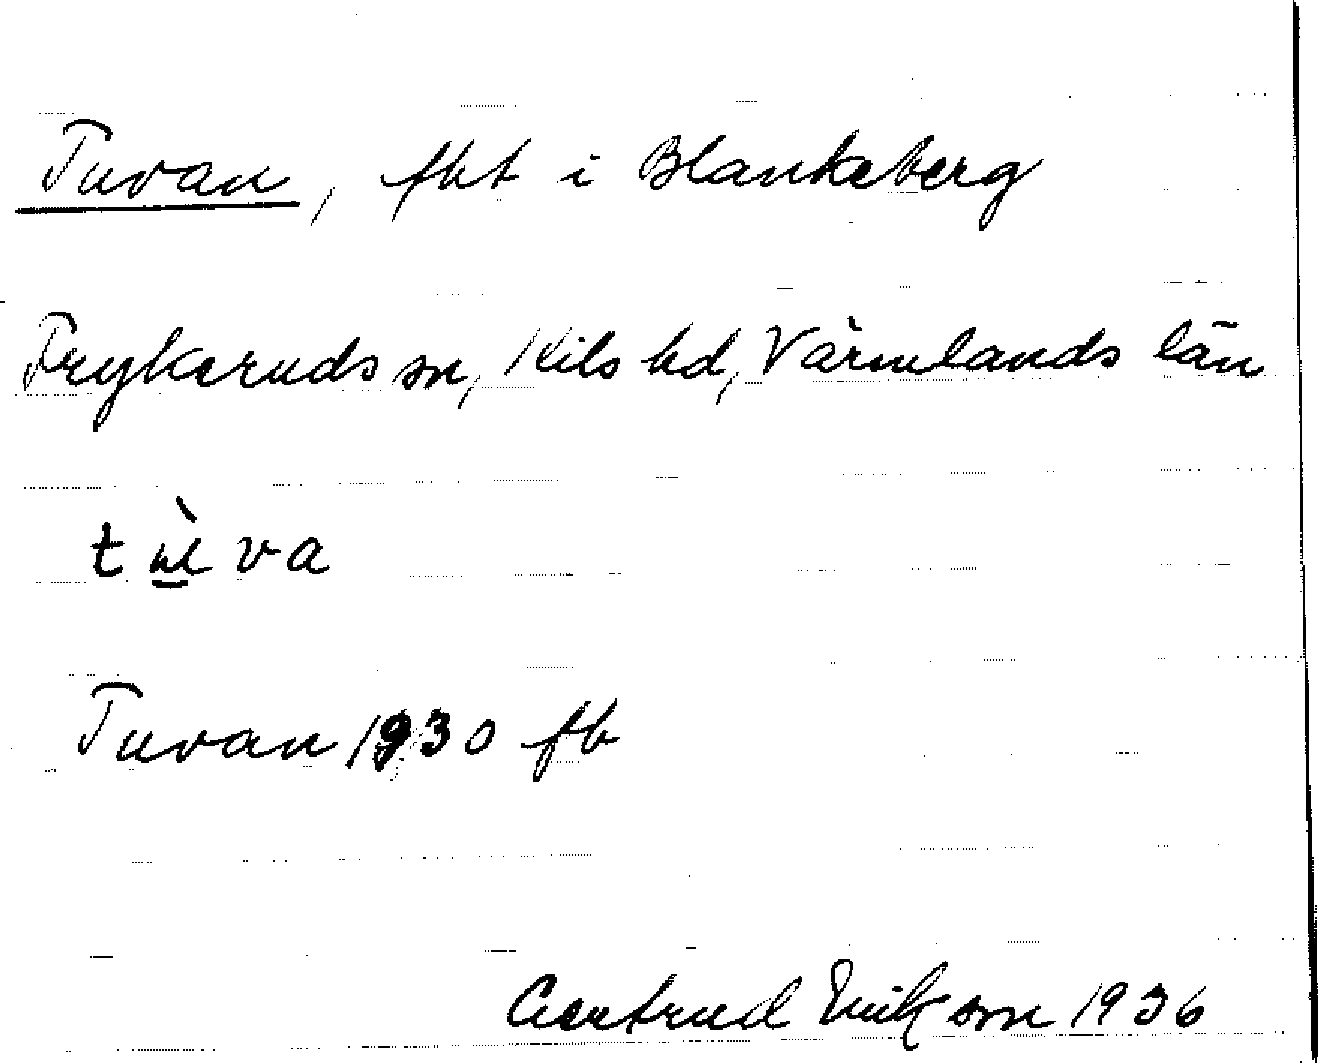 Tuvan, fht i Blankeberg
Frykeruds sn, Kils hd, Värmlands län
tùva
Tuvan 1930 fb
Gertrud Erikson 1936